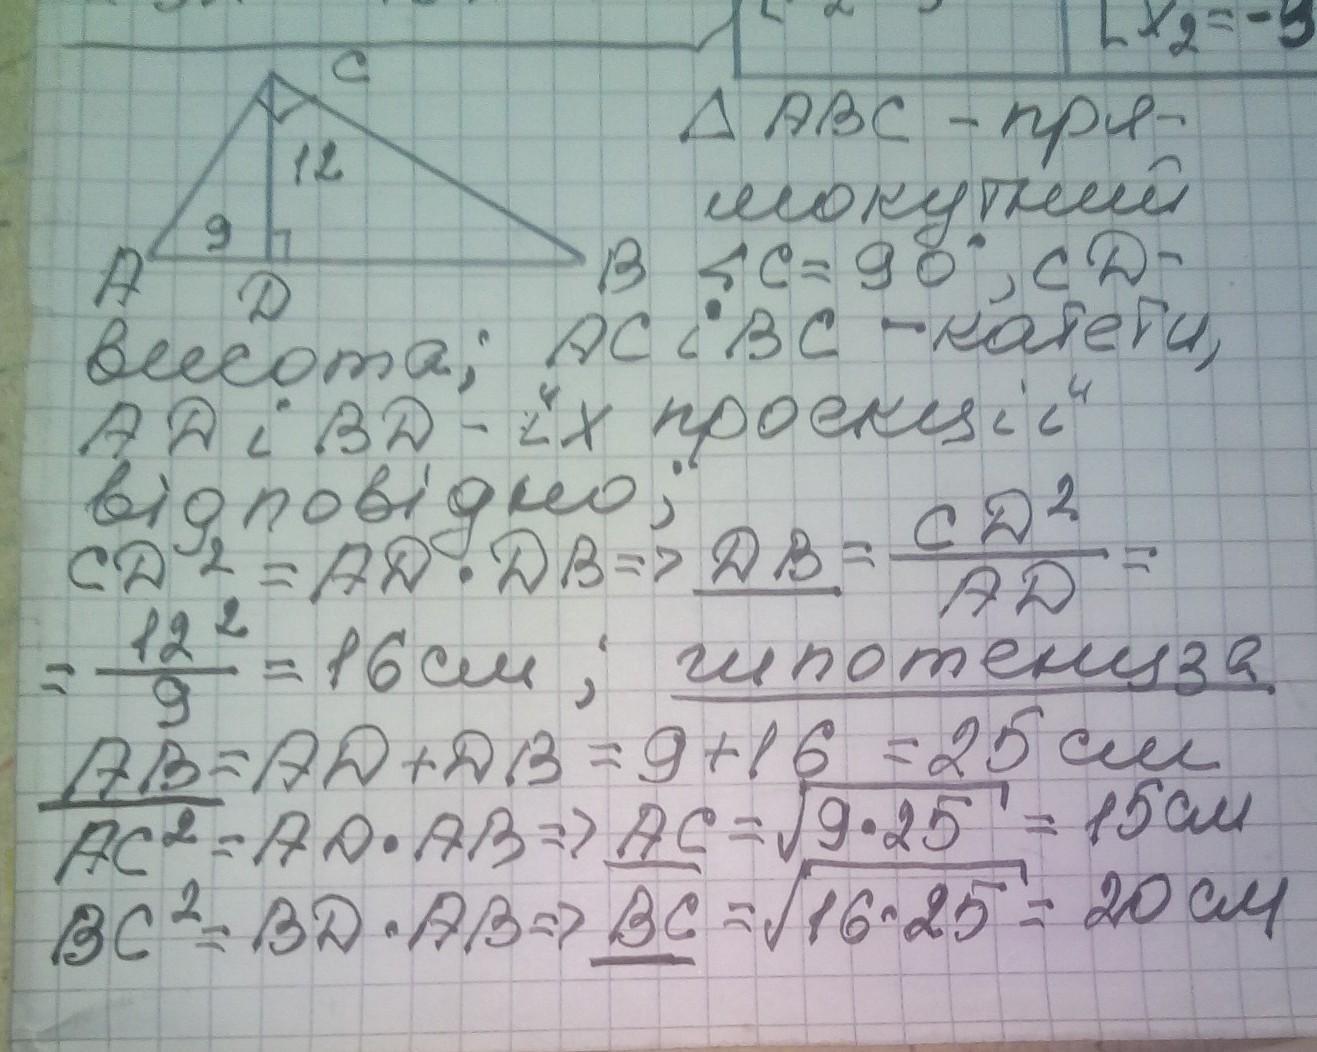 [x₂=-3
C
12
9
A
D
B
△ ABC - пря-
мокутний
∢C = 90°, CD-
висота; AC і BC - катети,
AD і BD - їх проекції
відповідно;
CD² = AD · DB => DB = CD²/AD =
= 12²/9 = 16 см ; гіпотенуза
AB = AD + DB = 9 + 16 = 25 см
AC² = AD · AB => AC = √9·25 = 15 см
BC² = BD · AB => BC = √16·25 = 20 см